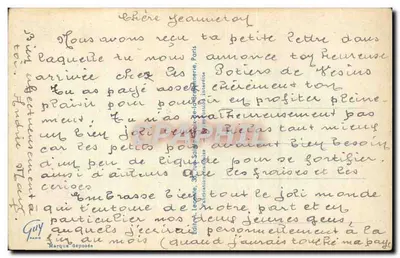 Chère Jeanneton
Nous avons reçu ta petite lettre dans
laquelle tu nous annonce ton heureuse
arrivée chez les Potiers de Vesins
Tu as payé assez chèrement ton
plaisir pour pouvoir en profiter pleine-
ment. Tu n'as malheureusement pas
un bien joli temps tant mieux
car les petits avaient bien besoin
d'un peu de liquide pour se fortifier.
ainsi d'ailleurs que les fraises et les
cerises
Embrasse bien tout le joli monde
qui t'entoure de notre part et en
particulier nos deux jeunes gens
auxquels j'écrirai personnellement à la
fin du mois (quand j'aurais touché ma paye
Bien affectueusement à
toi.
Guy
Marque déposée